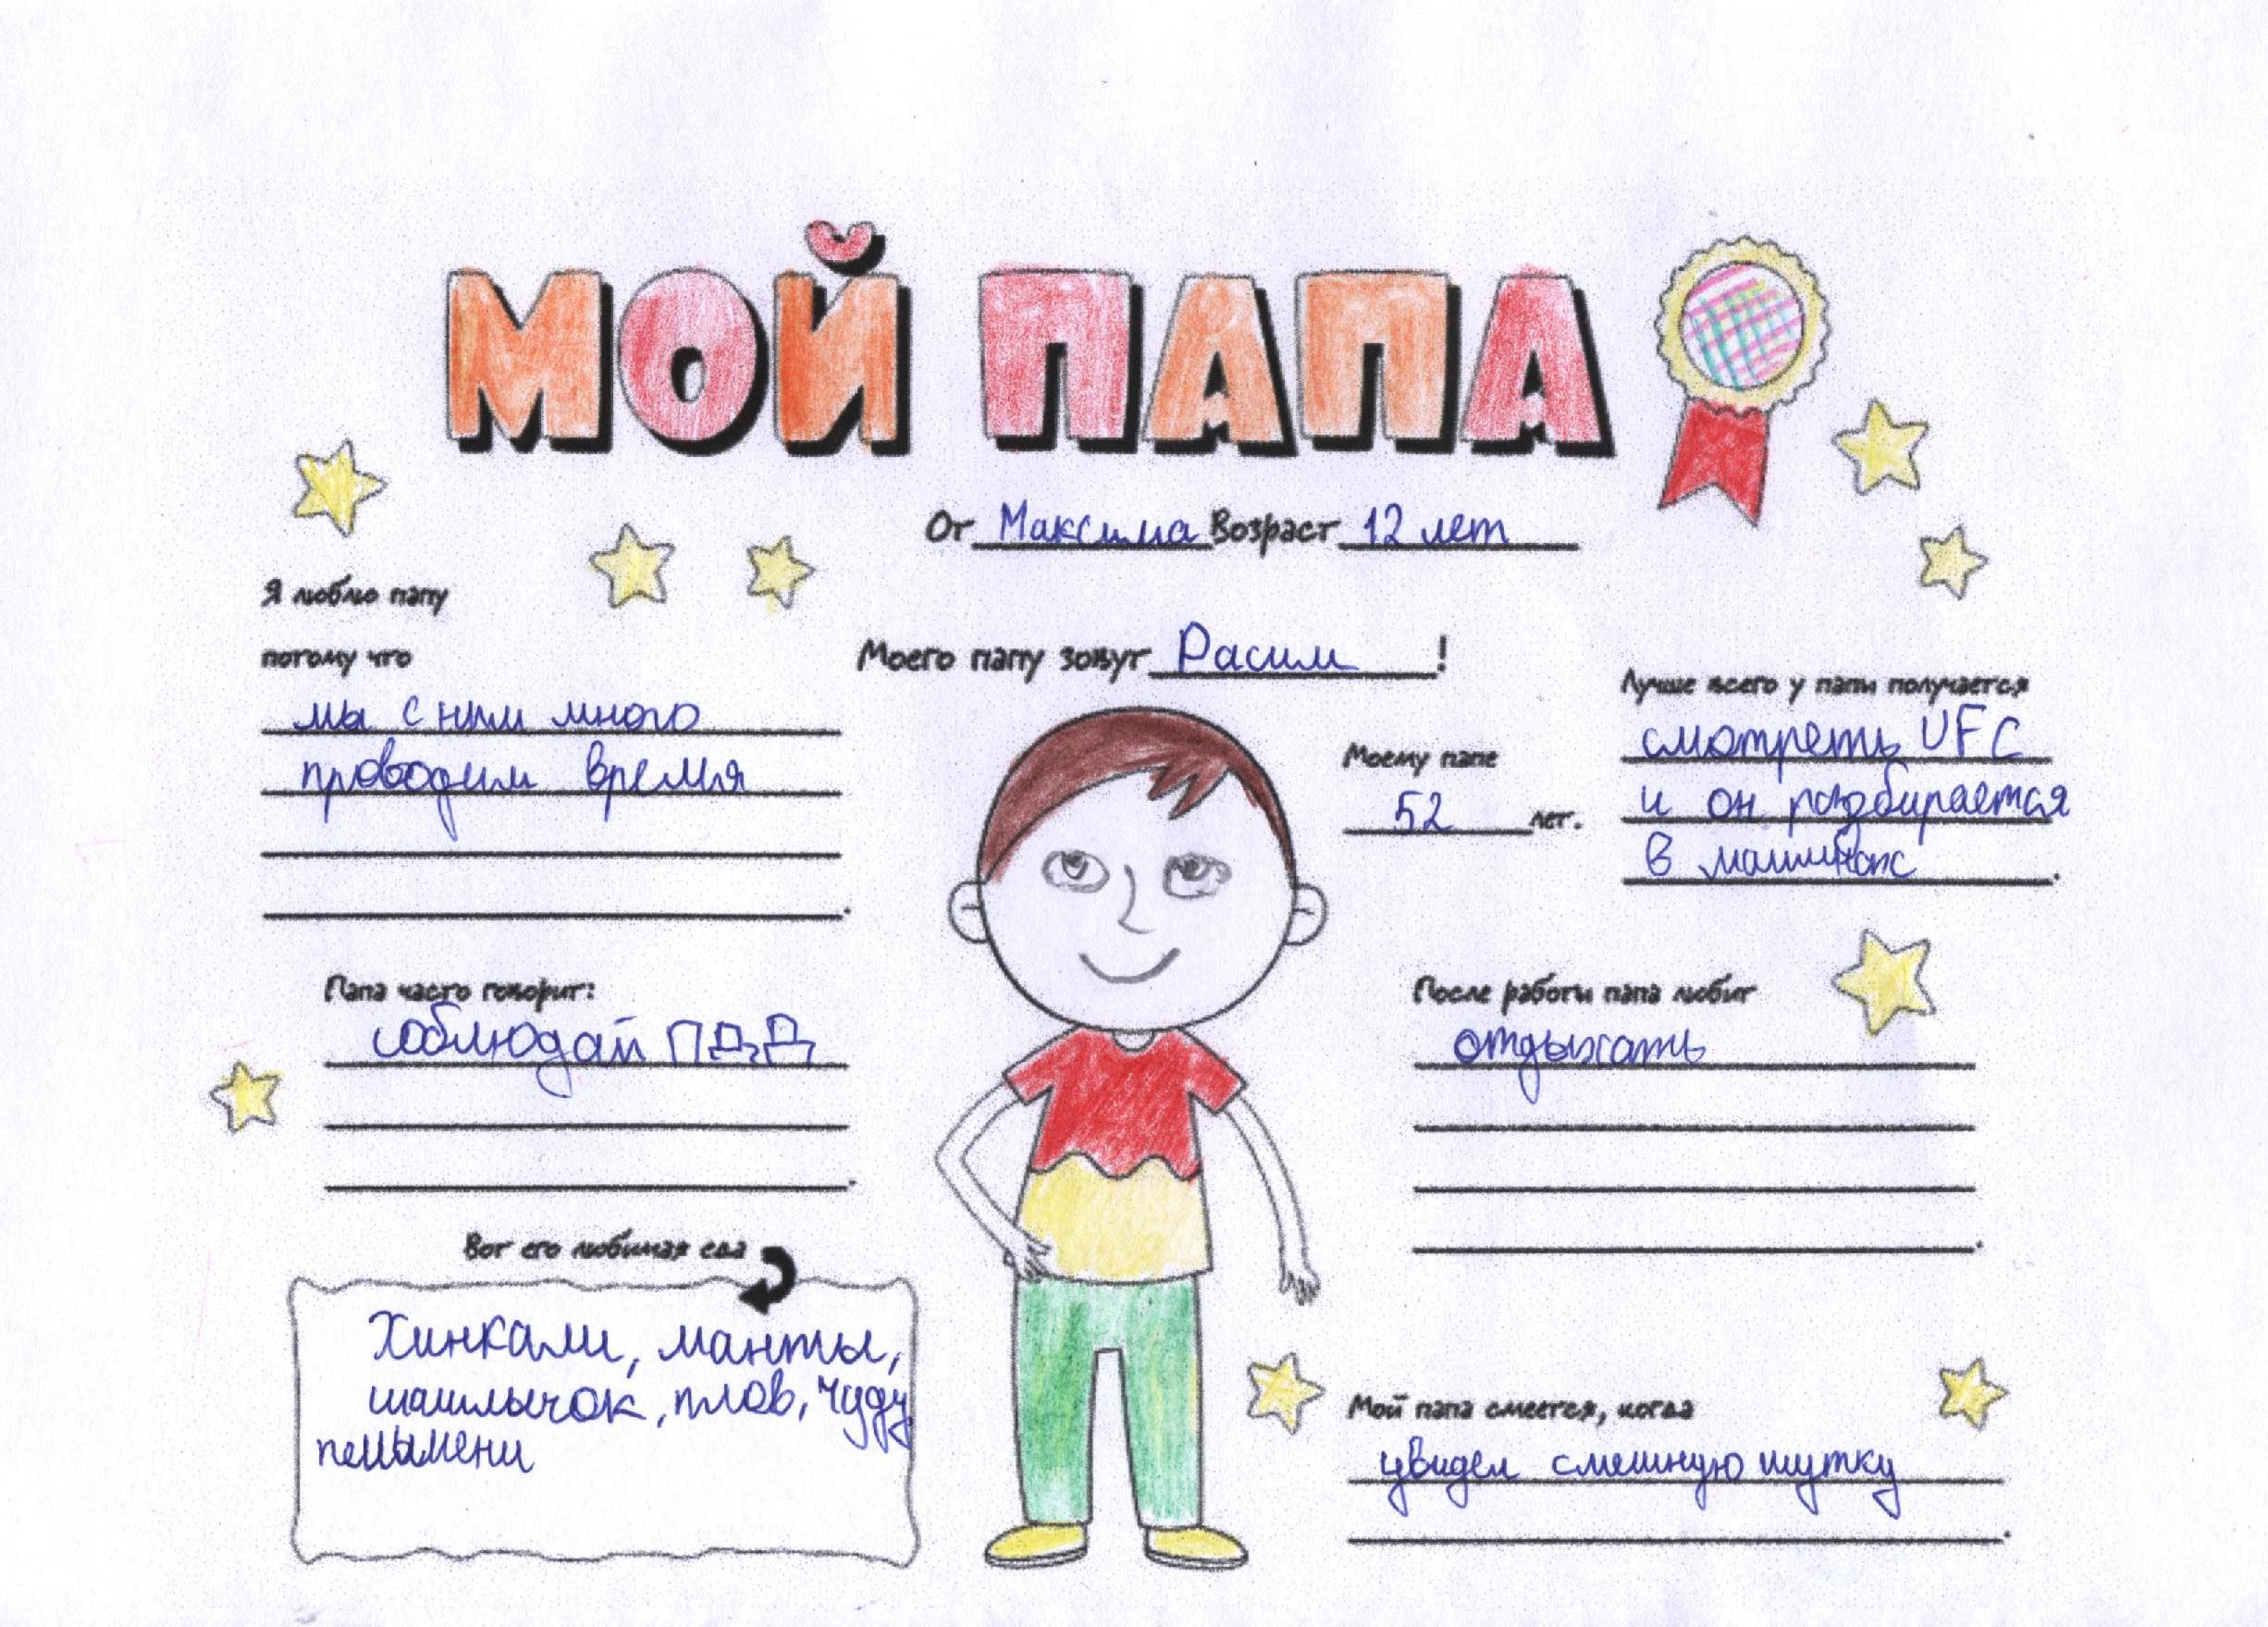 МОЙ ПАПА
От Максима Возраст 12 лет
Я люблю папу
потому что
мы с ним много
проводим время
Моего папу зовут Расим !
Моему папе
52 лет.
Лучше всего у папы получается
смотреть UFC
и он разбирается
в машинах.
Папа часто говорит:
соблюдай ПДД
После работы папа любит
отдыхать
Вот его любимая еда
Хинкали, манты,
шашлычок, плов, чуду
пельмени
Мой папа смеется, когда
увидел смешную шутку